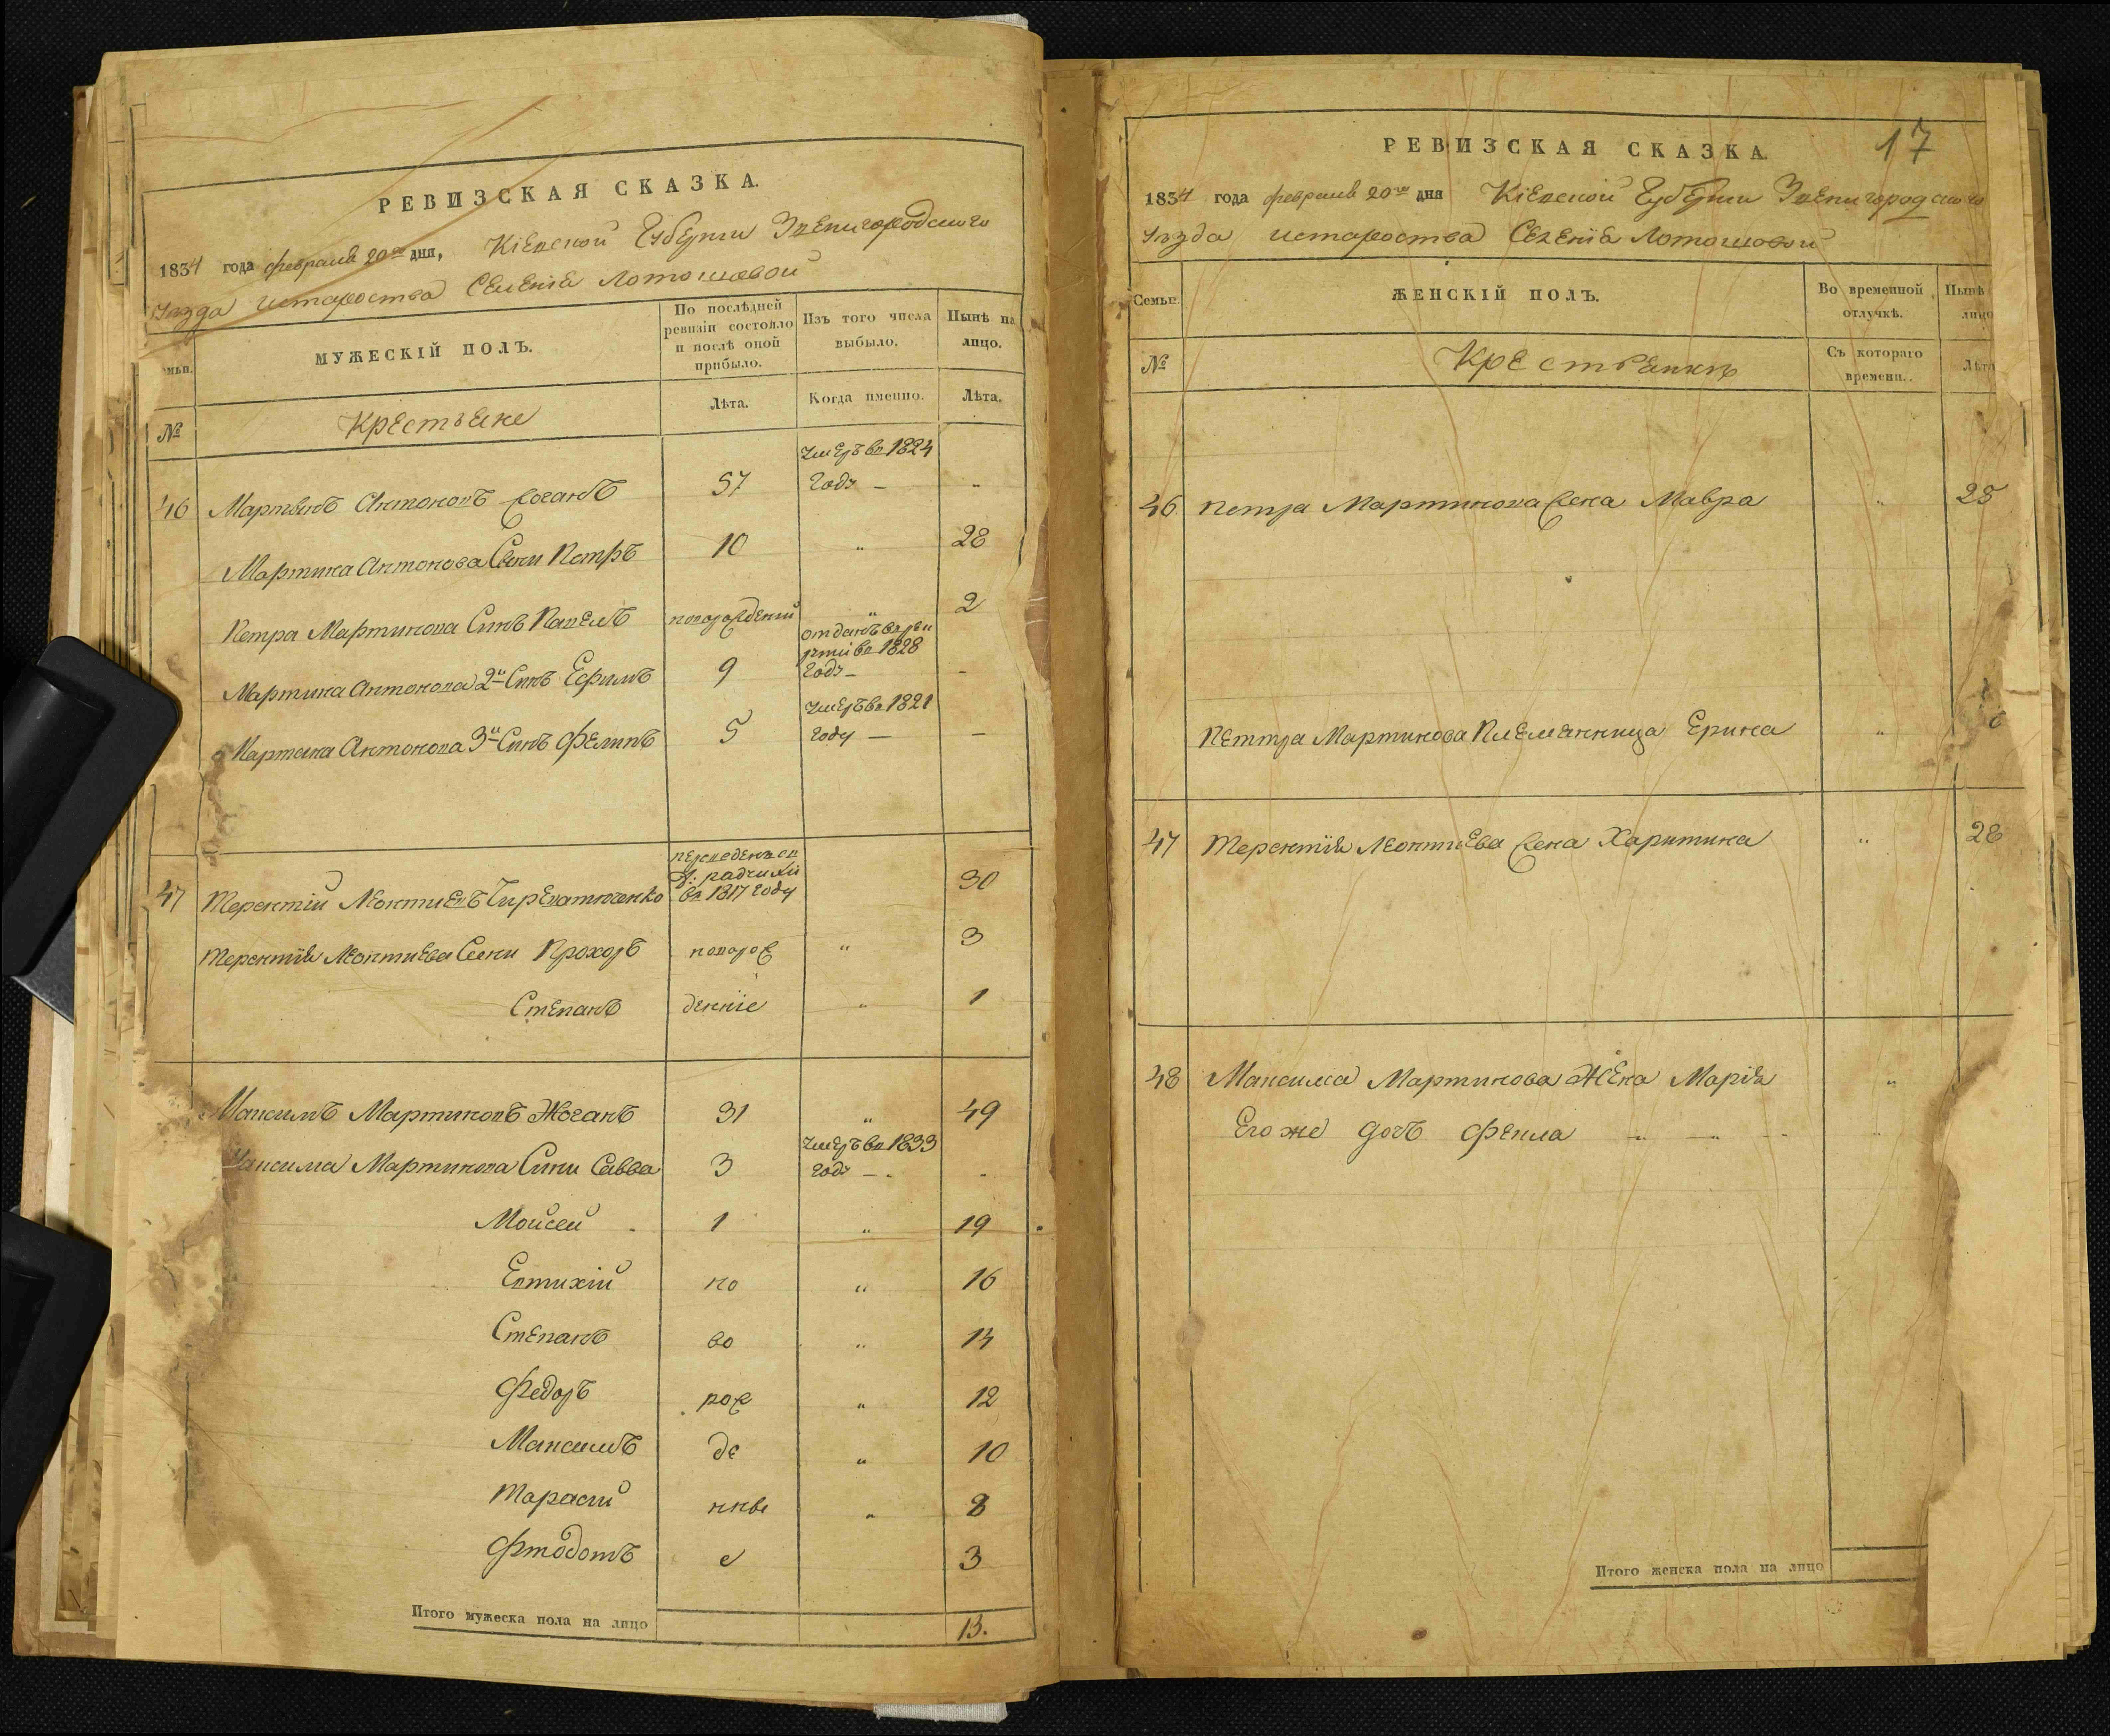 РЕВИЗСКАЯ СКАЗКА.
1834 года февраля 20го дня, Кіевской Губерніи Звенигородского
уезда истароства Селенія Лотошовой
мьи.
МУЖЕСКІЙ ПОЛЪ.
По послѣдней ревизіи состояло и послѣ оной прибыло.
Изъ того числа выбыло.
Нынѣ на лицо.
№
Крестьяне
Лѣта.
Когда именно.
Лѣта.
46 Мартынъ Антоновъ Жоганъ 57 умеръ въ 1824 году — -
Мартина Антонова Сыни Петръ 10 " 28
Петра Мартинова Синъ Павелъ новорожденій " 2
Мартина Антонова 2й Синъ Ефимъ 9 отданъ въ рекруты въ 1828 году - -
Мартина Антонова 3й Синъ Филипъ 5 умеръ въ 1821 году — -
47 Терентій Леонтиевъ переведенъ въ 1817 году 30
Терентія Леонтиева Сини Прохоръ новорож " 3
Степанъ денніе " 1
Максимъ Мартиновъ Жоганъ 31 " 49
Максима Мартинова Сини Савва 3 умеръ въ 1833 году — -
Мойсей 1 " 19
Евтихій но " 16
Степанъ во " 14
Федоръ рож " 12
Максимъ де " 10
Тарасій нны " 8
е 3
Итого мужеска пола на лицо 13.
РЕВИЗСКАЯ СКАЗКА.
17
1834 года февраля 20го дня Кіевской Губерніи Звенигородского
уезда истароства Селенія Лотошовой
Семьи.
ЖЕНСКІЙ ПОЛЪ.
Во временной отлучкѣ.
Нынѣ лицо
№
Крестьянкъ
Съ котораго времени.
Лѣта
46 Петра Мартинова Жена Мавра " 25
Петтра Мартинова Племянница Ерина "
47 Терентія Леонтиева Жена Харитина " 28
48 Максима Мартинова Жена Марія "
Его же дочъ Фекла "
Итого женска пола на лицо